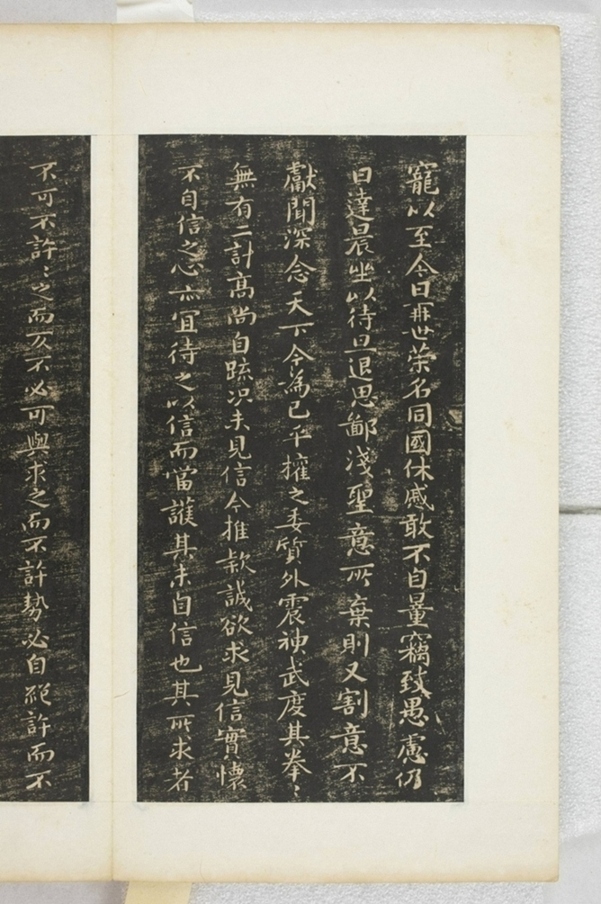 寵以至今日再世榮名同國休慼敢不自量竊致愚慮仍
日達晨坐以待旦退思鄙淺聖意所棄則又割意不
獻聞深念天下今為已平權之委質外震神武度其拳〻
無有二計高尚自疏況未見信今推款誠欲求見信實懷
不自信之心亦宜待之以信而當護其未自信也其所求者
不可不許〻之而反不必可與求之而不許勢必自絕許而不